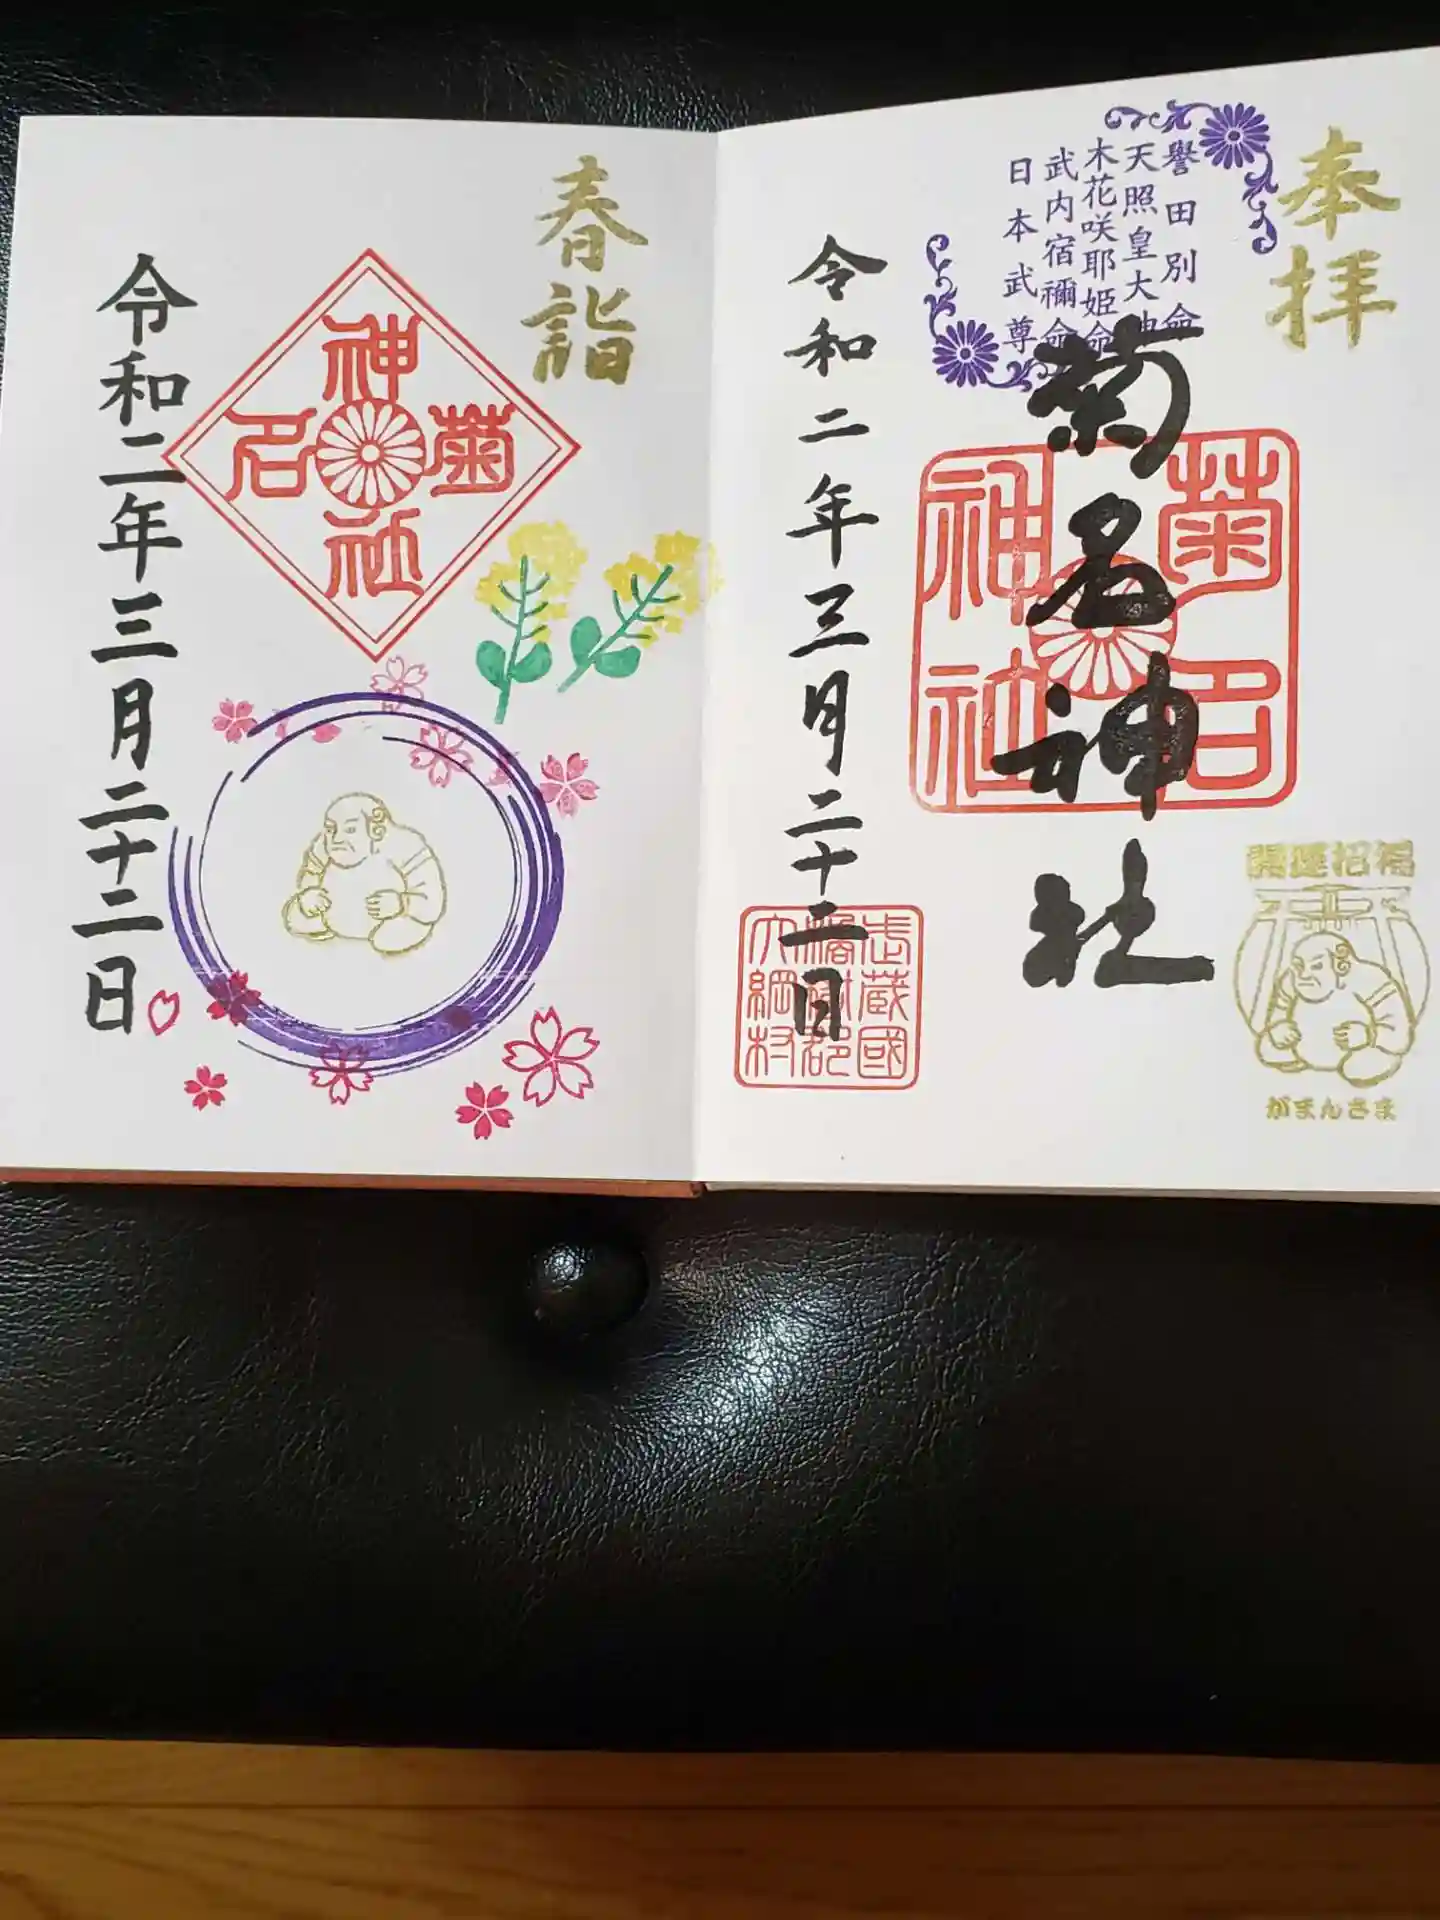 奉拝
譽田別命
天照皇大神
木花咲耶姫命
武内宿禰命
日本武尊
菊名神社
菊名
神社
開運招福
がまんさま
令和二年三月二十二日
武蔵國
橘樹郡
大綱村
春詣
菊名神社
令和二年三月二十二日